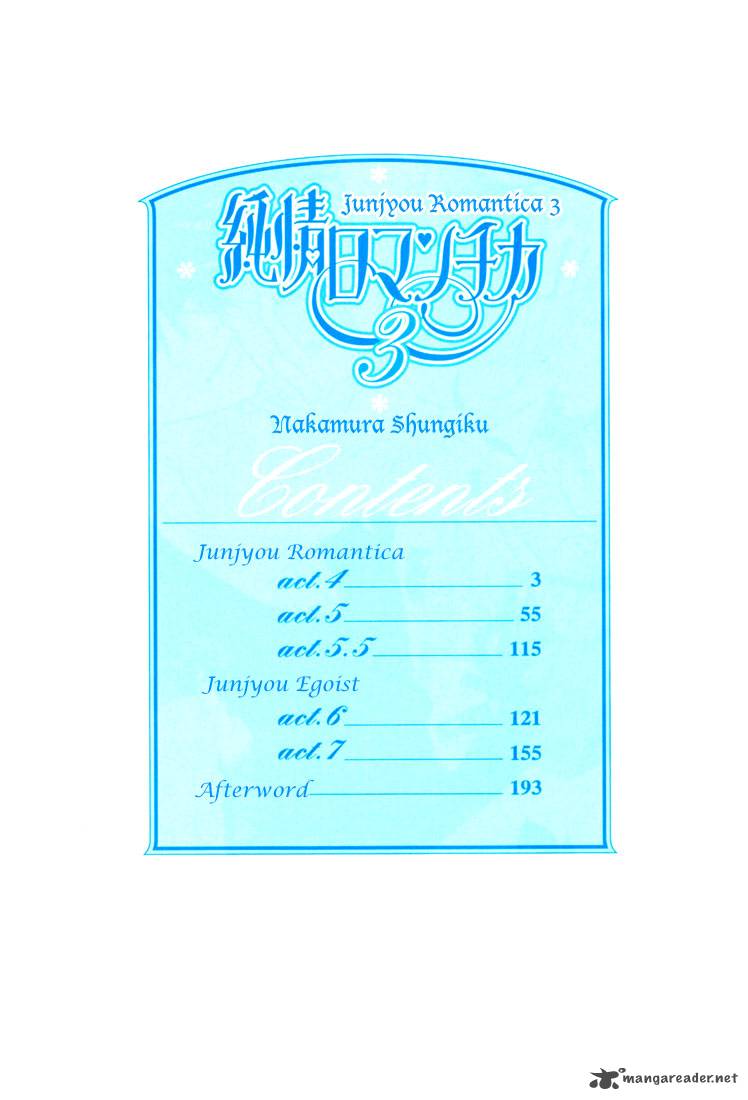 Junjyou Romantica 3
純情ロマンチカ
3
Nakamura Shungiku
Contents
Junjyou Romantica
act.4 3
act.5 55
act.5.5 115
Junjyou Egoist
act.6 121
act.7 155
Afterword 193
mangareader.net